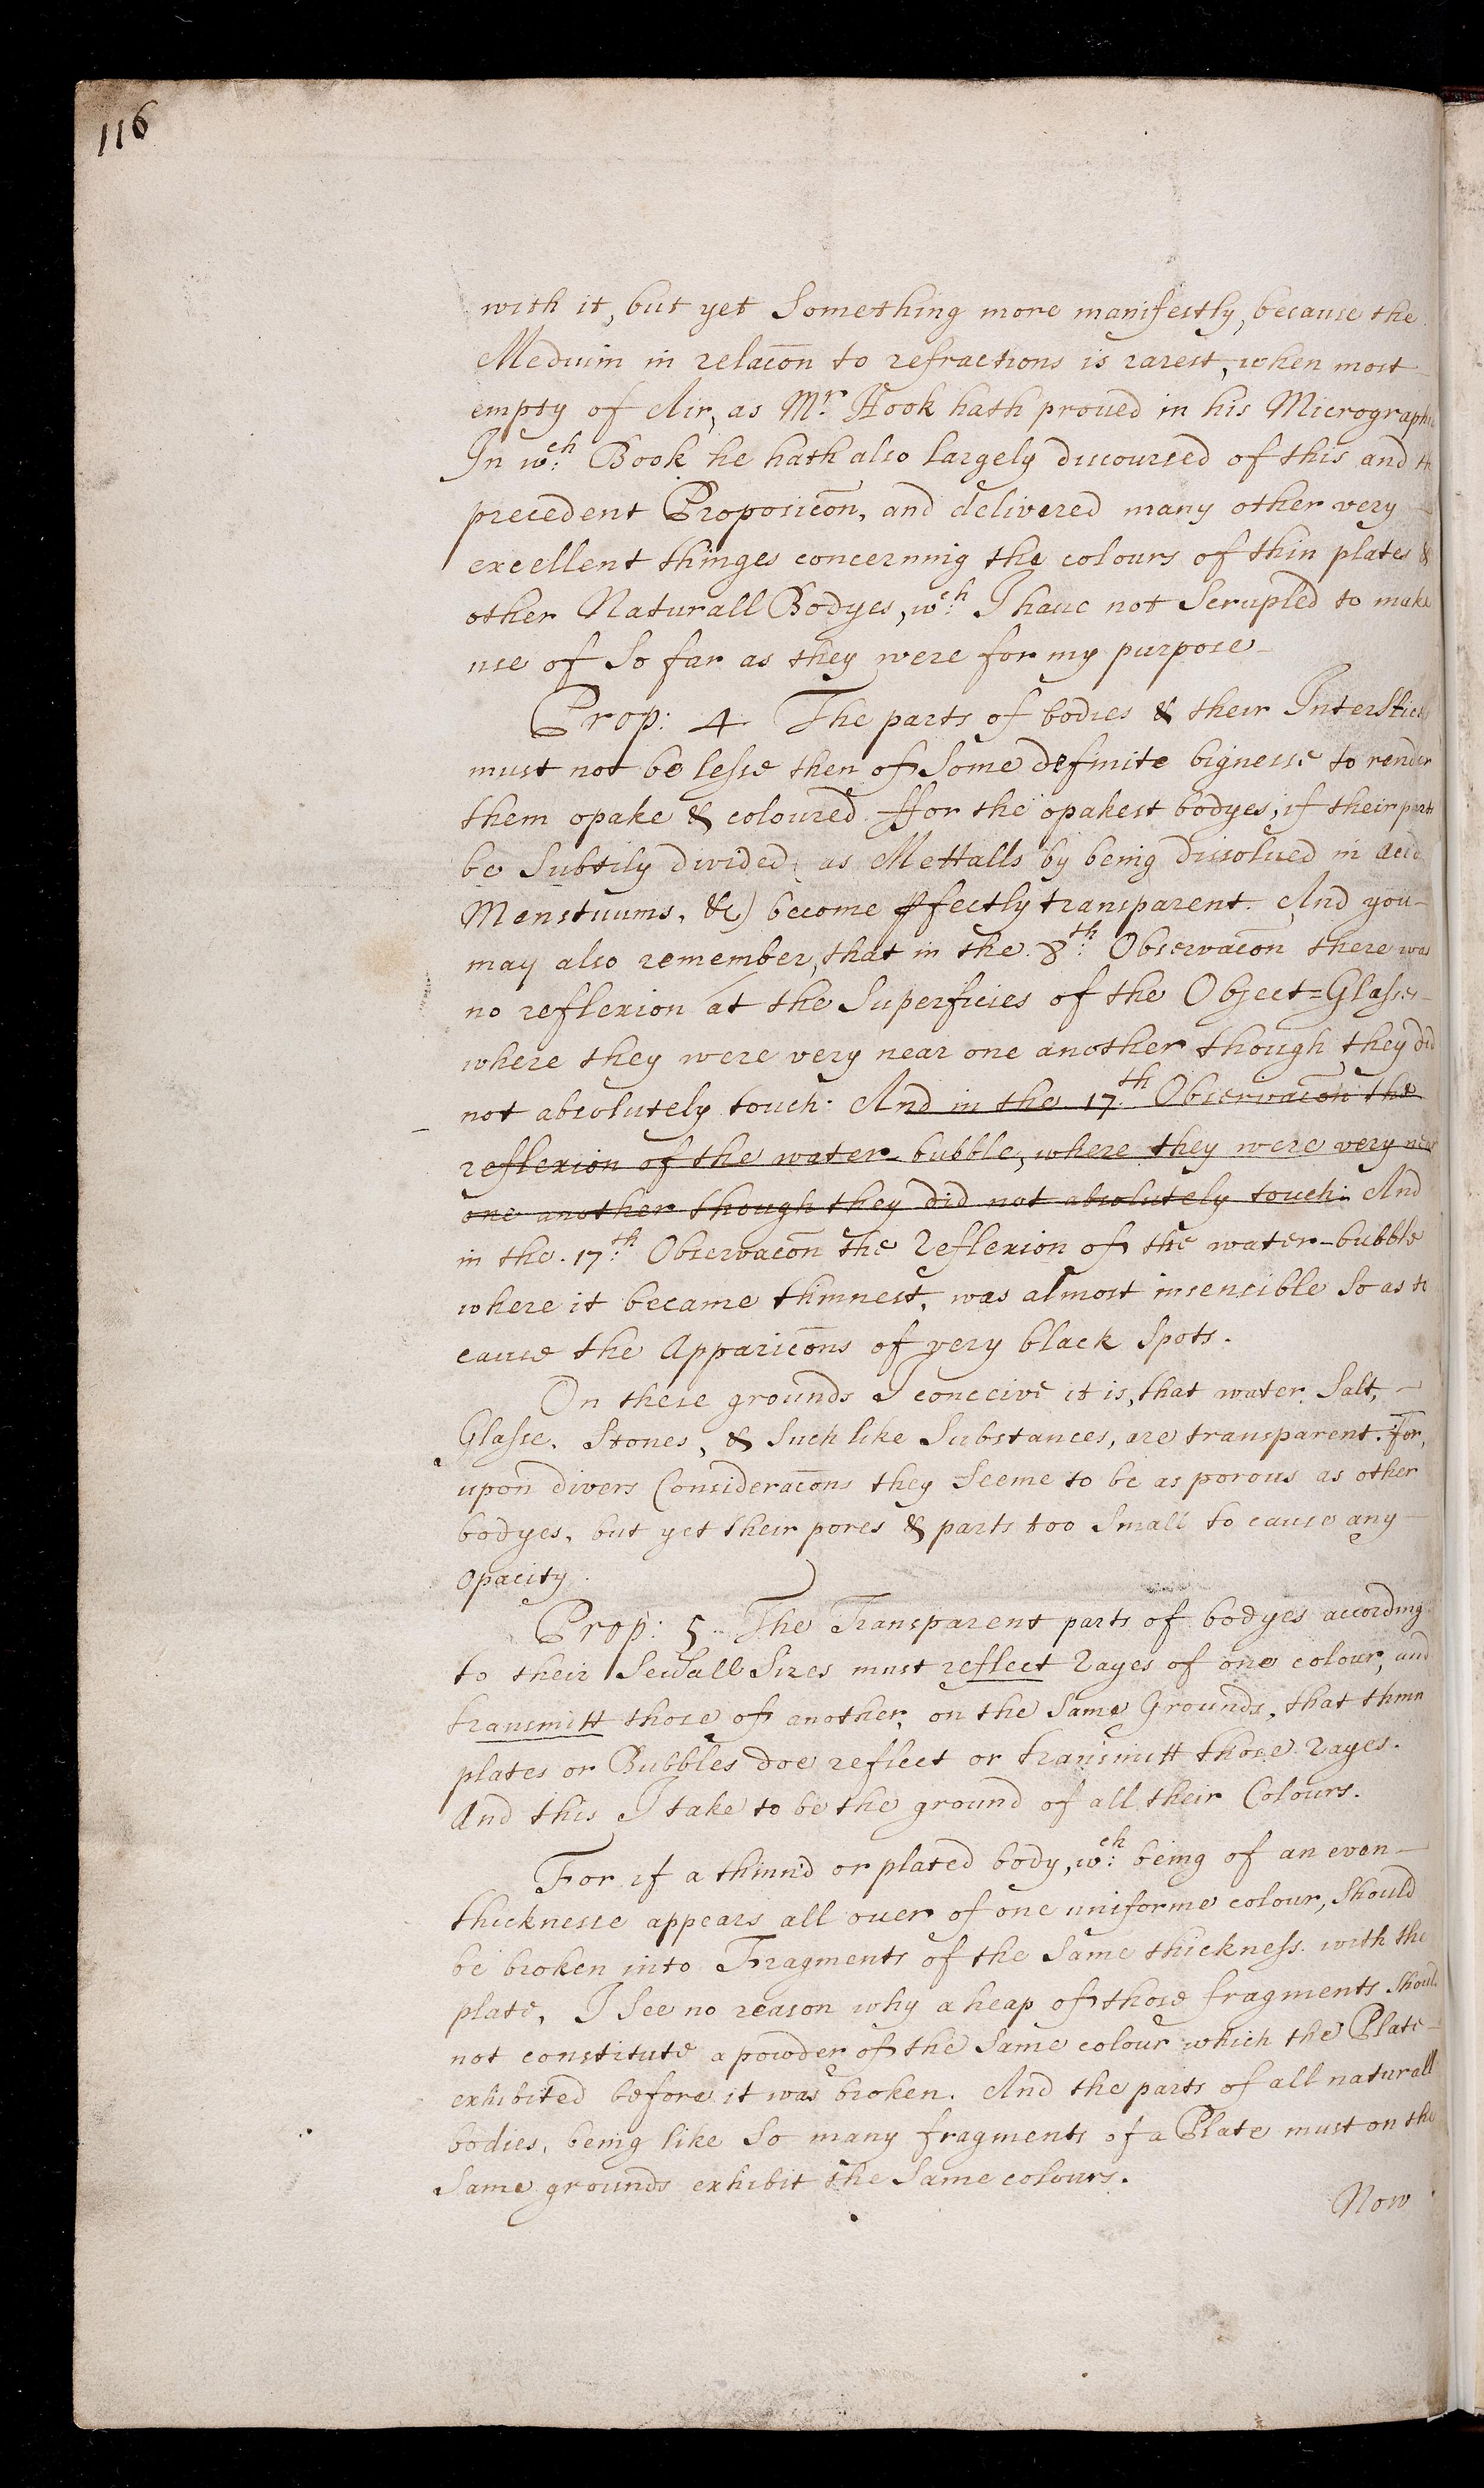 116
with it, but yet something more manifestly, because the
Medium in relacōn to refractions is rarest, when most
empty of Air, as Mr. Hook hath proved in his Micrographi
In wch: Book he hath also largely discoursed of this and th
precedent Proposicōn, and delivered many other very
excellent thinges concerning the colours of thin plates &
other Naturall Bodyes, wch: I haue not scrupled to make
use of so far as they were for my purpose
Prop: 4 The parts of bodies & their Interstices
must not be lesse then of some definite bignesse to render
them opake & coloured ffor the opakest bodyes, if their parts
be subtily divided, as Mettalls by being dissolued in acid
Menstuums, &c) become ꝑfectly transparent. And you
may also remember, that in the 8th: Observacōn there was
no reflexion at the superficies of the Object=Glasses
where they were very near one another though they did
not absolutely touch. And in the 17th Observacōn the
reflexion of the water-bubble, where they were very near
one another though they did not absolutely touch. And
in the 17th: Observacōn the reflexion of the water-bubble
where it became thinnest, was almost insencible so as to
cause the apparicōns of very black spots.
On these grounds I conceive it is, that water, salt,
Glasse, stones, & such like substances, are transparent. For,
upon divers Consideracōns they seeme to be as porous as other
bodyes, but yet their pores & parts too small to cause any
opacity.
Prop: 5. The Transparent parts of bodyes according
to their seuerall sizes must reflect rayes of one colour, and
transmitt those of another, on the same Grounds, that thinn
plates or Bubbles doe reflect or transmitt those rayes.
And this I take to be the ground of all their Colours.
For if a thinn'd or plated body, wch: being of an even
thicknesse appears all ouer of one uniforme colour, should
be broken into Fragments of the same thickness with the
plate, I see no reason why a heap of those fragments should
not constitute a powder of the same colour which the Plate
exhibited before it was broken. And the parts of all naturall
bodies, being like so many fragments of a Plate must on the
same grounds exhibit the same colours.
Now